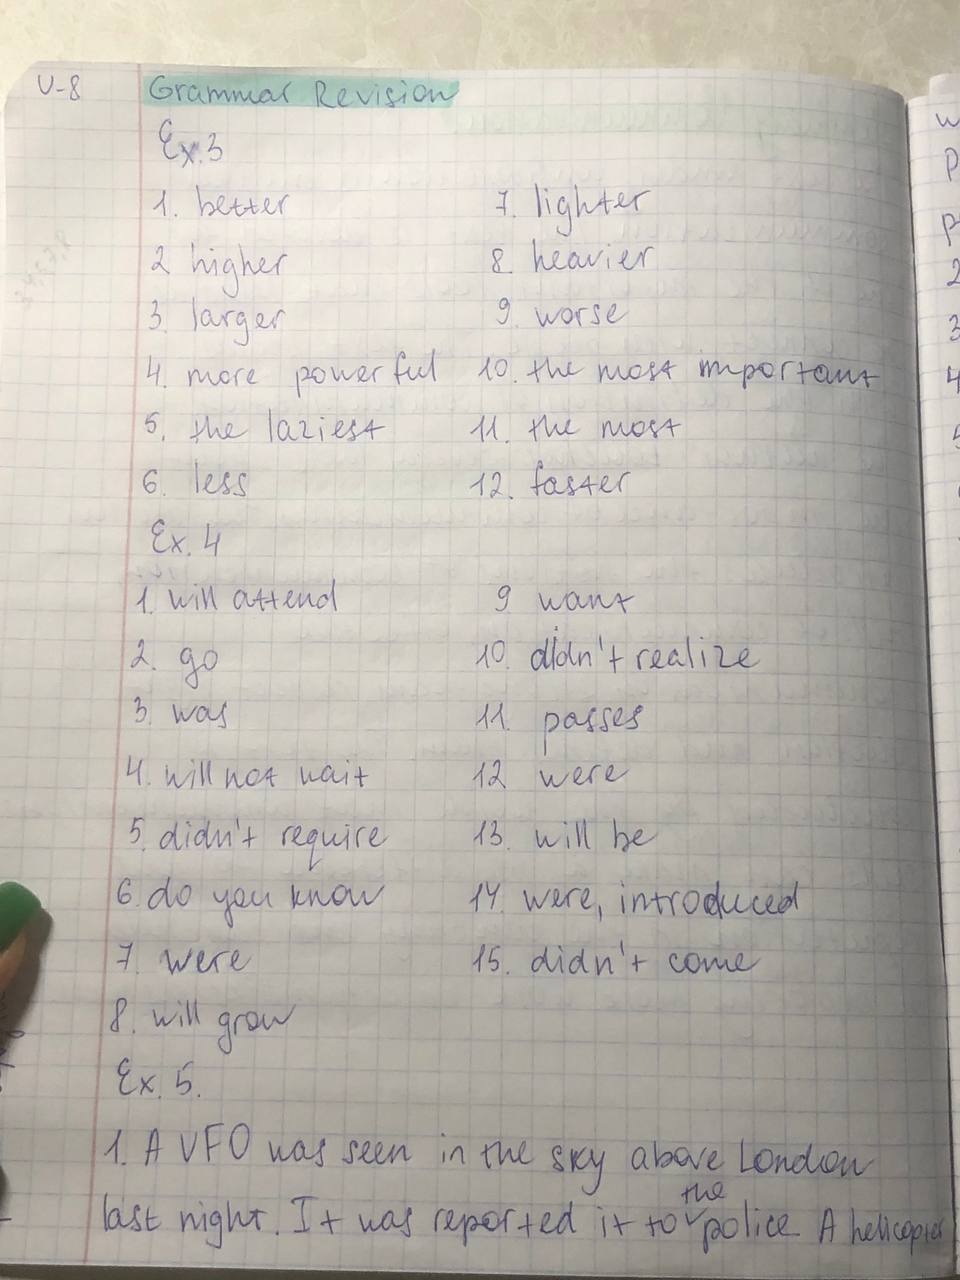 U-8 Grammar Revision
Ex.3
1. better 7. lighter
2 higher 8. heavier
3. larger 9. worse
4. more powerful 10. the most important
5. the laziest 11. the most
6. less 12. faster
Ex. 4
1. will attend 9 want
2. go 10. didn't realize
3. was 11. passes
4. will not wait 12. were
5. didn't require 13. will be
6. do you know 14. were, introduced
7. were 15. didn't come
8. will grow
Ex. 5.
1. A UFO was seen in the sky above London
last night. It was reported it to the police. A helicopter